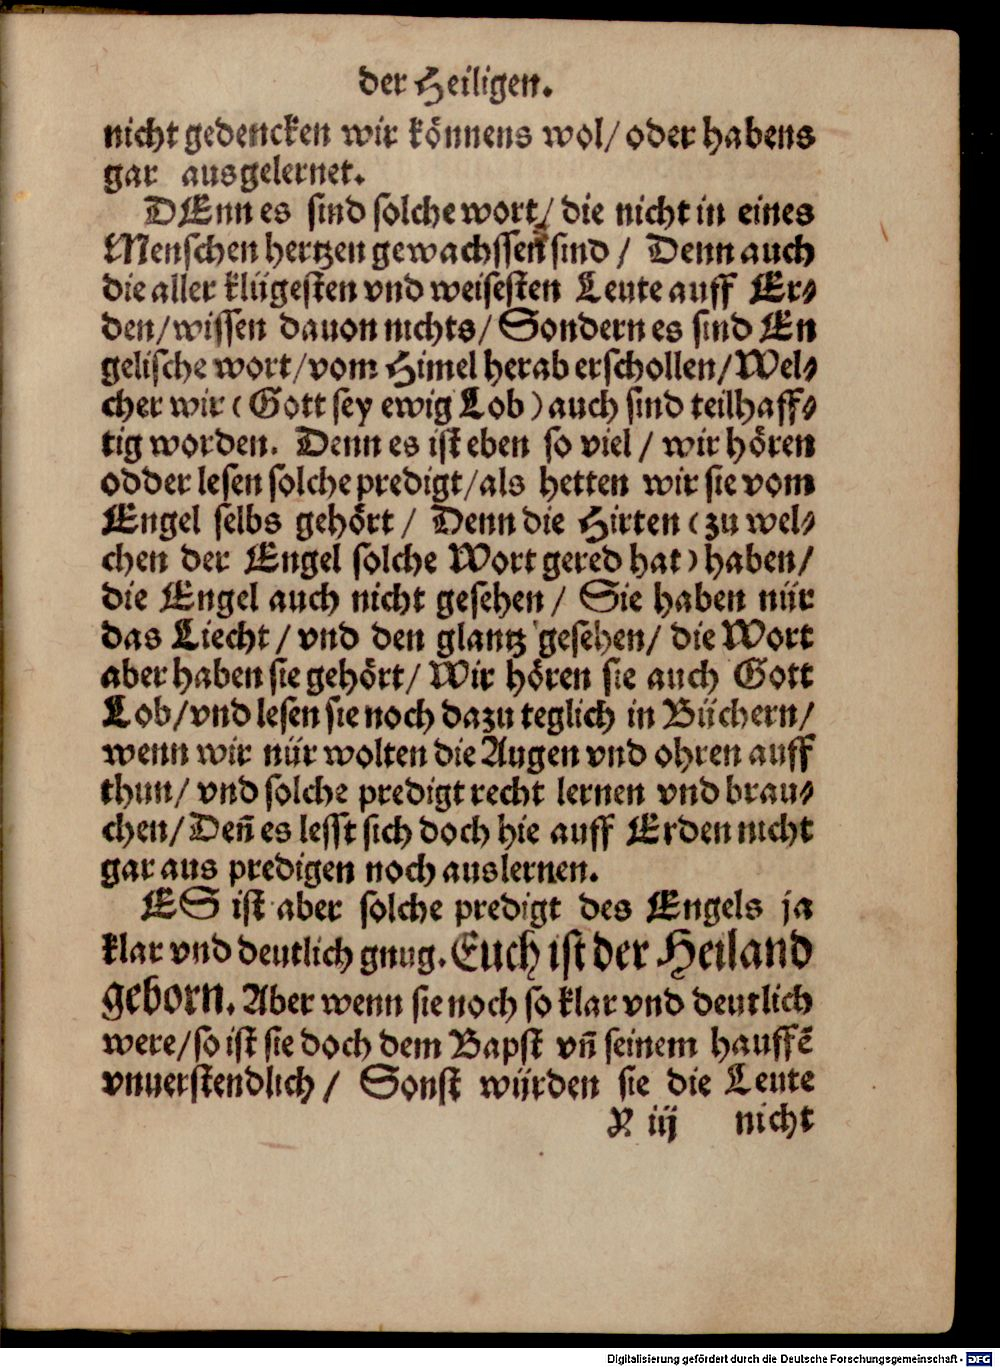 der Heiligen.
nicht gedencken wir könnens wol/ oder habens
gar ausgelernet.
DEnn es sind solche wort/ die nicht in eines
Menschen hertzen gewachssen sind / Denn auch
die aller klügesten vnd weisesten Leute auff Er⸗
den/wissen dauon nichts/ Sondern es sind En
gelische wort/vom Himel herab erschollen/Wel⸗
cher wir ( Gott sey ewig Lob ) auch sind teilhaff⸗
tig worden. Denn es ist eben so viel / wir hören
odder lesen solche predigt/als hetten wir sie vom
Engel selbs gehört / Denn die Hirten ( zu wel⸗
chen der Engel solche Wort gered hat ) haben/
die Engel auch nicht gesehen / Sie haben nür
das Liecht / vnd den glantz gesehen/ die Wort
aber haben sie gehört/ Wir hören sie auch Gott
Lob/vnd lesen sie noch dazu teglich in Büchern/
wenn wir nür wolten die Augen vnd ohren auff
thun/ vnd solche predigt recht lernen vnd brau⸗
chen/ Deñ es lesst sich doch hie auff Erden nicht
gar aus predigen noch auslernen.
ES ist aber solche predigt des Engels ja
klar vnd deutlich gnug. Euch ist der Heiland
geborn. Aber wenn sie noch so klar vnd deutlich
were/so ist sie doch dem Bapst vñ seinem hauffē
vnuerstendlich / Sonst würden sie die Leute
X iij nicht
Digitalisierung gefördert durch die Deutsche Forschungsgemeinschaft - DFG